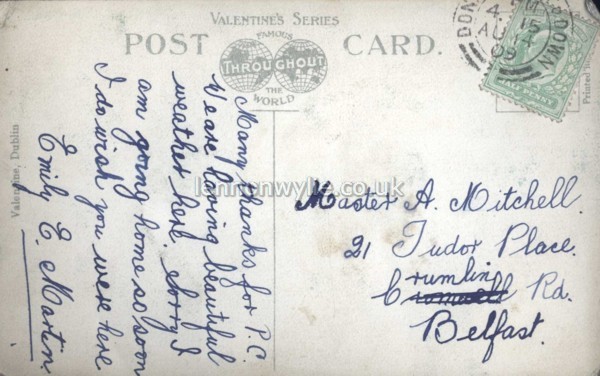 VALENTINE'S SERIES
POST CARD.
FAMOUS
THROUGHOUT
THE
WORLD
Valentine, Dublin
Many thanks for P.C.
We are having beautiful
weather here. Sorry I
am going home so soon
I do wish you were here
Emily E. Martin.
Master A. Mitchell.
21 Tudor Place.
Crumlin Rd.
Belfast.
4. PM
AU 15
HALF PENNY
Printed in
lennonwylie.co.uk